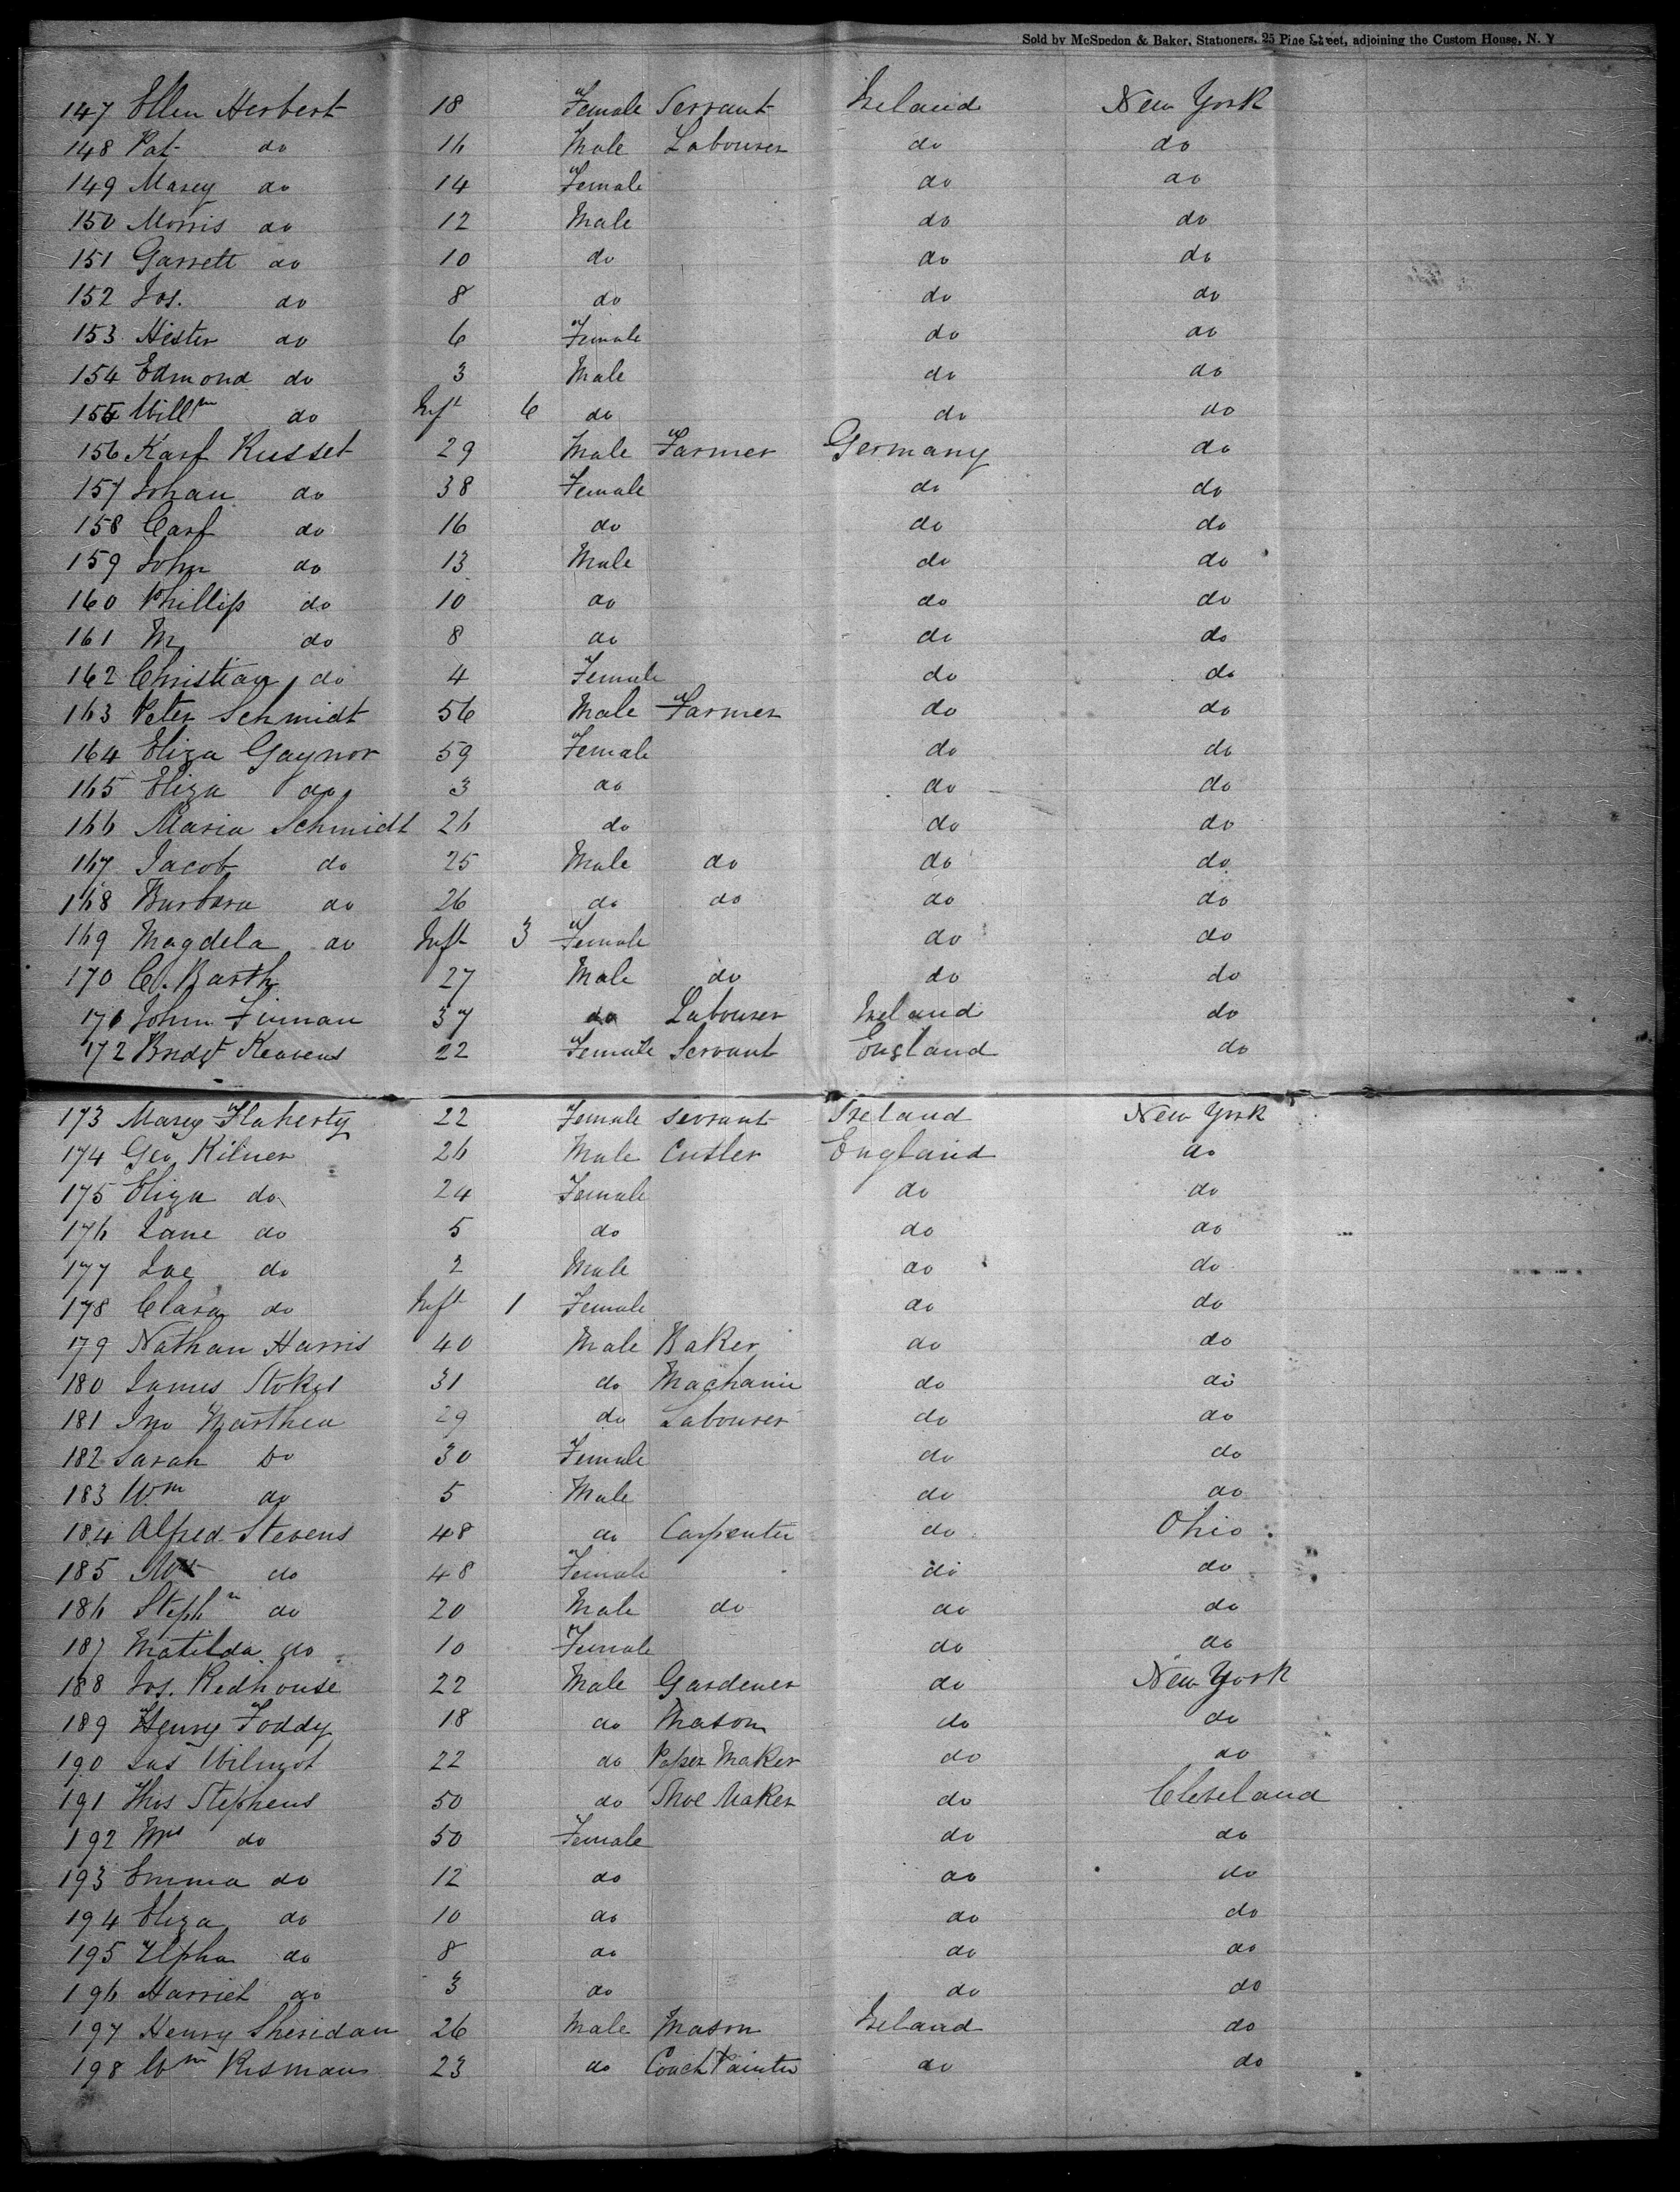 Sold by McSpedon & Baker, Stationers, 25 Pine Street, adjoining the Custom House, N. Y
147 Ellen Herbert 18 Female Servant Ireland New York
148 Pat do 16 Male Labourer do do
149 Marey do 14 Female do do
150 Morris do 12 Male do do
151 Garrett do 10 do do do
152 Jos. do 8 do do do
153 Hester do 6 Female do do
154 Edmond do 3 Male do do
155 Willm do Inft 6 do do do
156 Karl Russet 29 Male Farmer Germany do
157 Johan do 38 Female do do
158 Carl do 16 do do do
159 John do 13 Male do do
160 Phillip do 10 do do do
161 M do 8 do do do
162 Christian do 4 Female do do
163 Peter Schmidt 56 Male Farmer do do
164 Eliza Gaynor 59 Female do do
165 Eliza do 3 do do do
166 Maria Schmidt 26 do do do
167 Jacob do 25 Male do do do
168 Barbara do 26 do do do do
169 Magdela do Inft 3 Female do do
170 C. Barth 27 Male do do do
171 John 37 do Labourer Ireland do
172 Bridgt Keavens 22 Female Servant England do
173 Marey Flaherty 22 Female servant Ireland New York
174 Geo Kilner 26 Male Cutler England do
175 Eliza do 24 Female do do
176 Jane do 5 do do do
177 Joe do 2 Male do do
178 Clara do Inft 1 Female do do
179 Nathan Harris 40 Male Baker do do
180 James Stokes 31 do Machanic do do
181 Jno 29 do Labourer do do
182 Sarah Do 30 Female do do
183 Wm do 5 Male do do
184 Alfred Stevens 48 do Carpenter do Ohio
185 do 48 Female do do
186 Stephn do 20 Male do do do
187 Matilda do 10 Female do do
188 Jos. Redhouse 22 Male Gardener do New York
189 Henry Foddy 18 do Mason do do
190 Jas Wilmot 22 do Paper Maker do do
191 Thos Stephens 50 do Shoe Maker do Cleveland
192 Mrs do 50 Female do do
193 Emma do 12 do do do
194 Eliza do 10 do do do
195 do 8 do do do
196 Harriet do 3 do do do
197 Henry Sheridan 26 Male Mason Ireland do
198 Wm 23 do Coach Painter do do